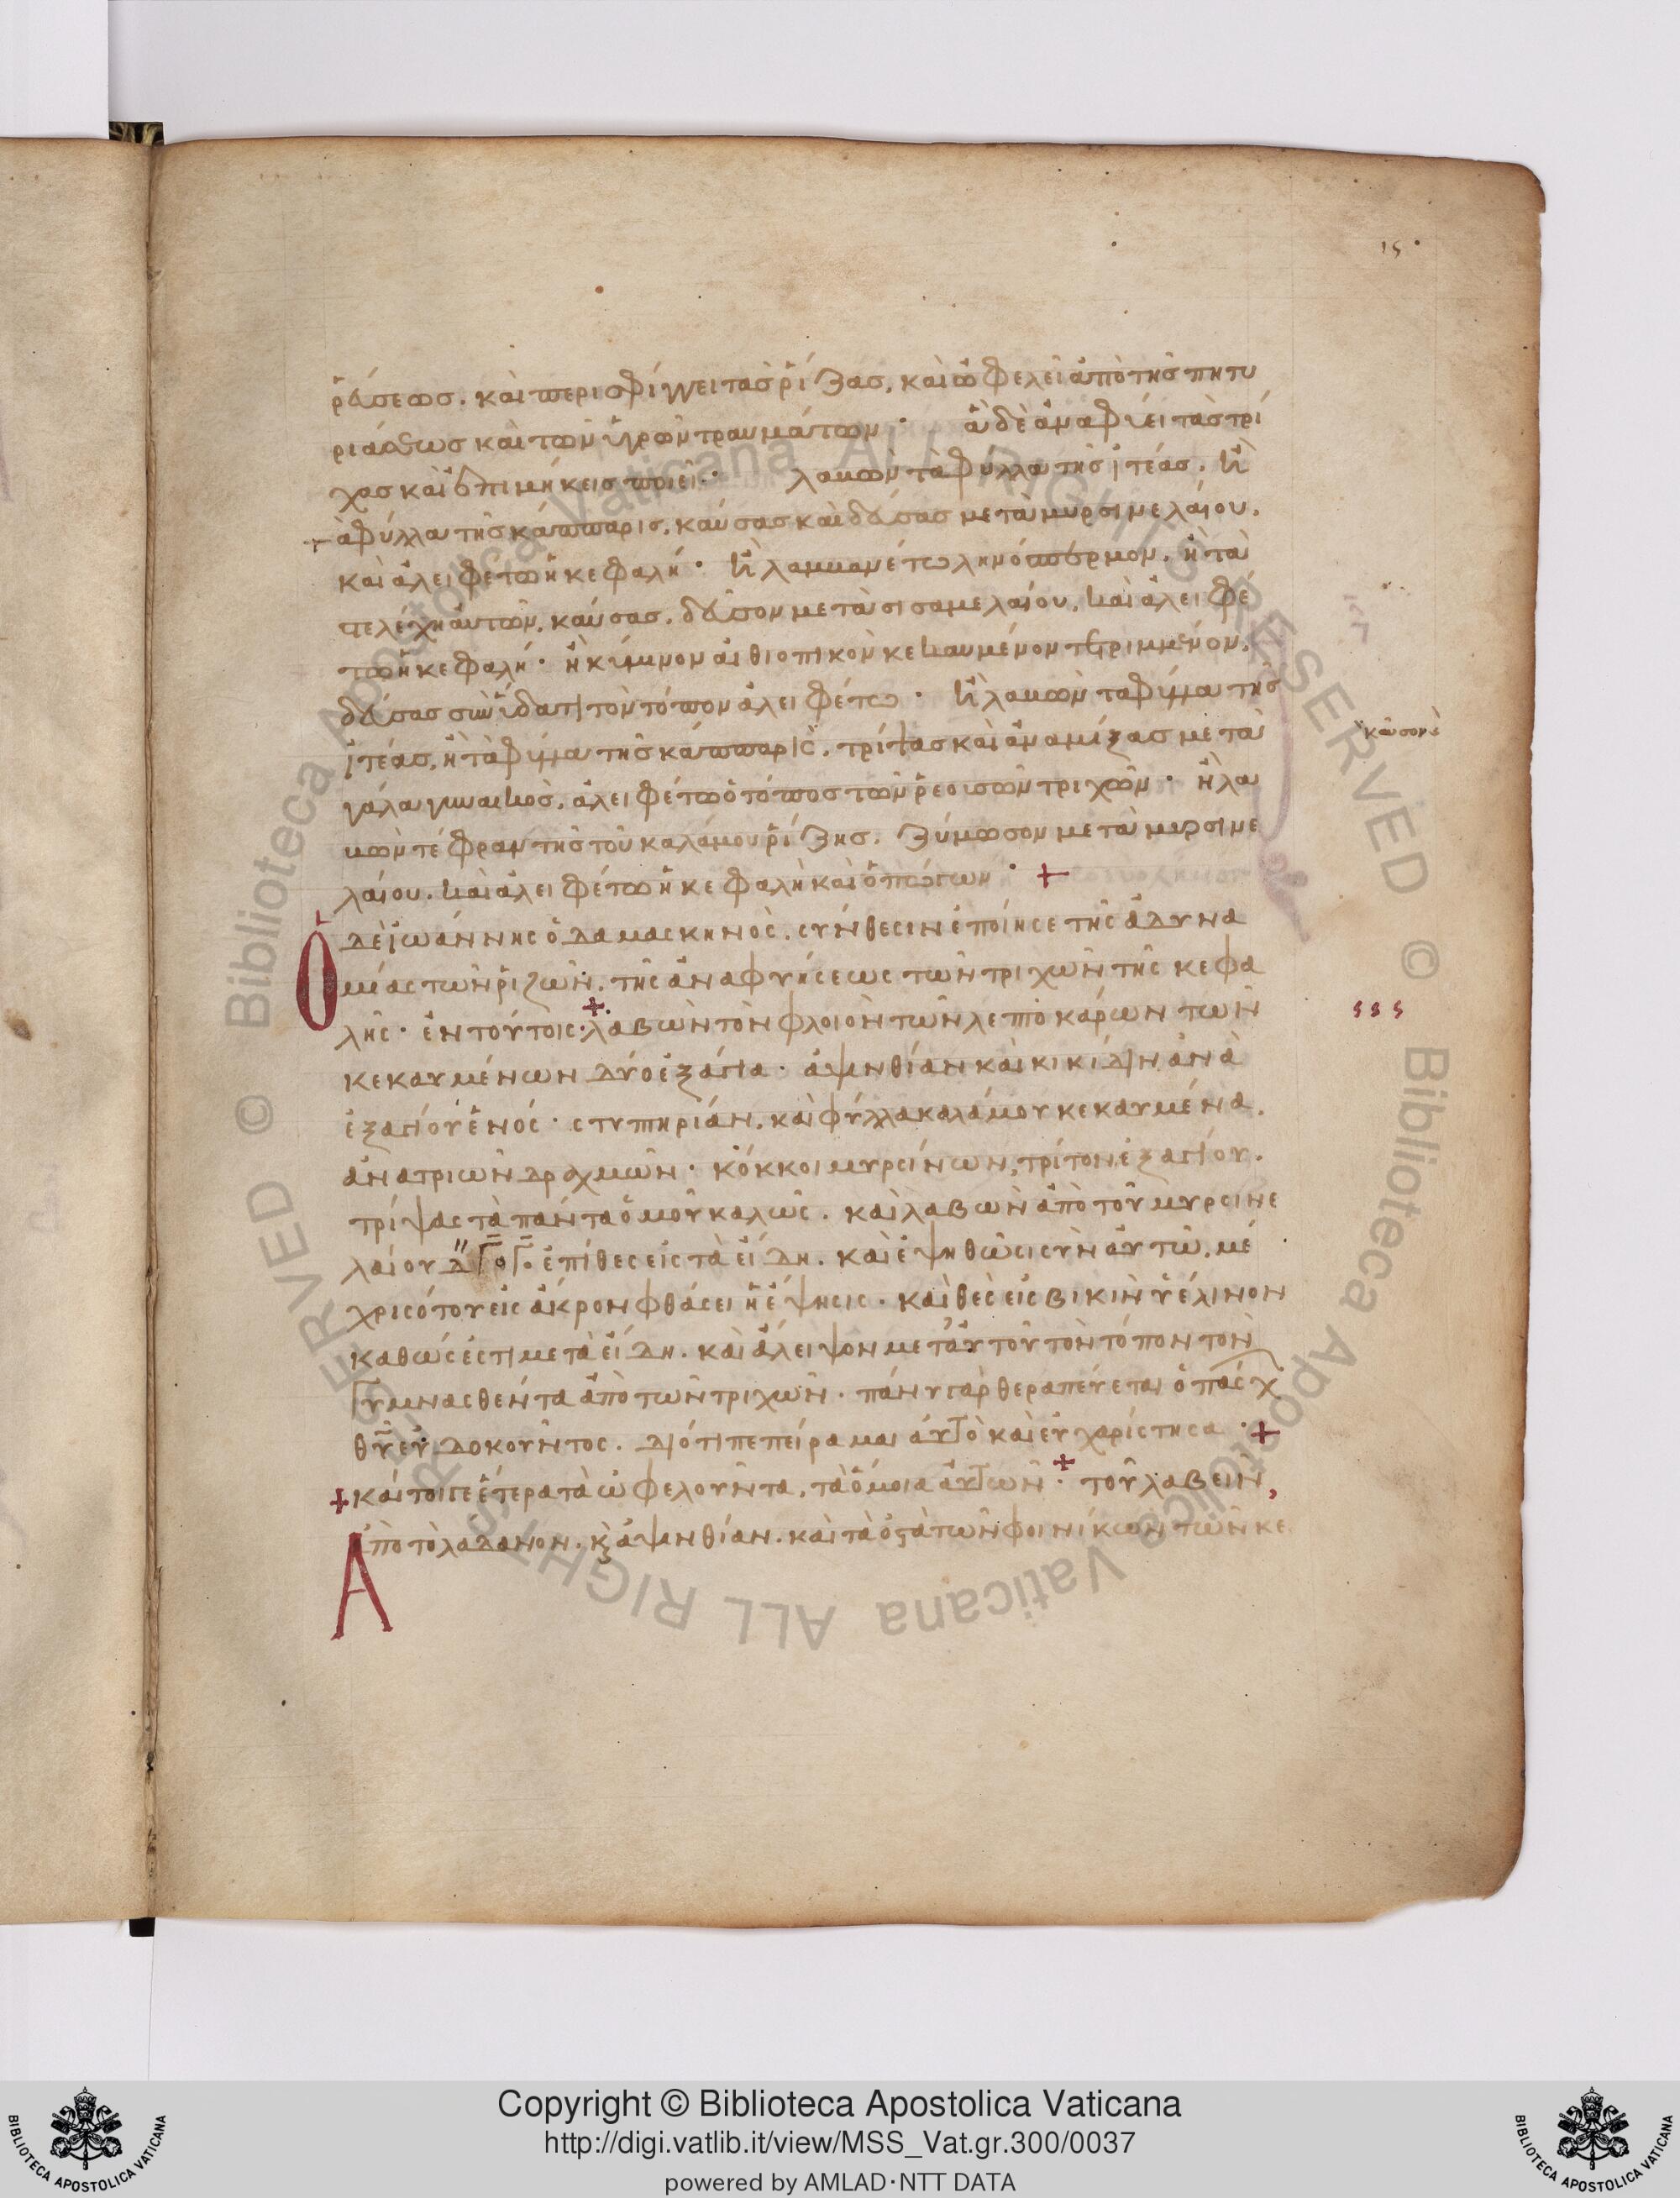 ιϛ·
ῥεύσεως. καὶ περισφίγγει τὰς ῥίζας, καὶ ὠφελεῖ ἀπὸ τῆς πητυ
ριάσεως καὶ τῶν ὑγρῶν τραυμάτων· ἃ δὲ ἀναφύει τὰς τρί
χας καὶ ἐπιμήκεις ποιεῖ· λαβὼν τὰ φύλλα τῆς ἰτέας. ἢ
τὰ φύλλα τῆς κάππαρις, καύσας καὶ δεύσας μετὰ μυρσινελαίου.
καὶ ἀλειφέτω ἡ κεφαλή· ἢ λαμβανέτω ληνόσπερμον. ἢ τὰ
στελέχη αὐτῶν, καύσας. δεῦσον μετὰ σισαμελαίου. καὶ ἀλειφέ
τω ἡ κεφαλή· ἢ κύμινον αἰθιοπικὸν κεκαυμένον τετριμμένον,
δεύσας σὺν ὕδατι τὸν τόπον ἀλειφέτω· ἢ λαβὼν τὰ φύλλα τῆς
ἰτέας, ἢ τὰ φύλλα τῆς κάππαρις. τρίψας καὶ ἀναμίξας μετὰ
γάλα γυναικός. ἀλειφέτω ὁ τόπος τῶν ῥεουσῶν τριχῶν· ἢ λα
βὼν τέφραν τῆς τοῦ καλάμου ῥίζης. ζύμωσον μετὰ μυρσινε
λαίου. καὶ ἀλειφέτω ἡ κεφαλὴ καὶ ὁ πώγων· +
Ὁ δὲ ἰωάννης ὁ δαμασκηνὸς. σύνθεσιν ἐποίησε τῆς ἀδυνα
μίας τῶν ῥιζῶν. τῆς ἀναφυήσεως τῶν τριχῶν τῆς κεφα
λῆς· ἐν τούτοις· + λαβὼν τὸν φλοιὸν τῶν λεπτοκάρων τῶν
κεκαυμένων δύο ἐξάγια· ἀψινθίαν καὶ κικίδιν ἀνὰ
ἐξαγίου ἑνός· στυπηρίαν. καὶ φύλλα καλάμου κεκαυμένα.
ἀνὰ τριῶν δραχμῶν· κόκκοι μυρσίνων, τρίτον ἐξαγίου.
τρίψας τὰ πάντα ὁμοῦ καλῶς. καὶ λαβὼν ἀπὸ τοῦ μυρσινε
ἐπίθες εἰς τὰ εἴδη. καὶ ἑψηθῶσι σὺν αὐτῶ. μέ
χρις ὅτου εἰς ἄκρον φθάσει ἡ ἕψησις· καὶ θὲς εἰς βικὶν ὑέλινον
καθώς ἐστι μετὰ εἴδη. καὶ ἄλειψον μετ' αὐτοῦ τὸν τόπον τὸν
γυμνασθέντα ἀπὸ τῶν τριχῶν· πάνυ γὰρ θεραπεύεται ὁ πάσχ
θῦ εὐδοκοῦντος. διότι πεπείραμαι αὐτὸ καὶ εὐχαρίστησα· +
+ καίτοι γε ἕτερα τὰ ὠφελοῦντα, τὰ ὅμοια αὐτῶν· + τοῦ λαβεῖν,
Ἀπὸ τὸ λαδανον. κ̀ ἀψινθίαν. καὶ τὰ ὀστὰ τῶν φοινίκων τῶν κε
Copyright © Biblioteca Apostolica Vaticana
http://digi.vatlib.it/view/MSS_Vat.gr.300/0037
powered by AMLAD·NTT DATA
BIBLIOTECA APOSTOLICA VATICANA
BIBLIOTECA APOSTOLICA VATICANA